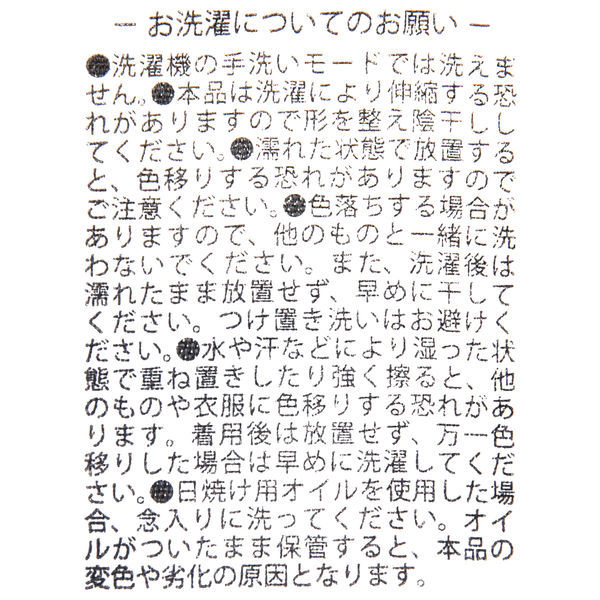 ― お洗濯についてのお願い ―
●洗濯機の手洗いモードでは洗えま
せん。●本品は洗濯により伸縮する恐
れがありますので形を整え陰干しし
てください。●濡れた状態で放置する
と、色移りする恐れがありますので
ご注意ください。●色落ちする場合が
ありますので、他のものと一緒に洗
わないでください。また、洗濯後は
濡れたまま放置せず、早めに干して
ください。つけ置き洗いはお避けく
ださい。●水や汗などにより湿った状
態で重ね置きしたり強く擦ると、他
のものや衣服に色移りする恐れがあ
ります。着用後は放置せず、万一色
移りした場合は早めに洗濯してくだ
さい。●日焼け用オイルを使用した場
合、念入りに洗ってください。オイ
ルがついたまま保管すると、本品の
変色や劣化の原因となります。